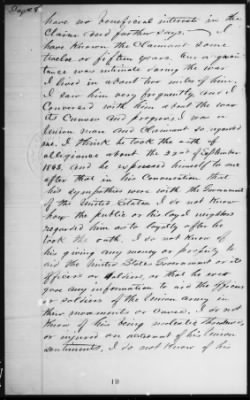 Page 8
have no beneficial interest in the
Claim and further says. I
have Known the Claimant some
twelve or fifteen years. Our acquain
tance was intimate during the war
I lived in about miles of him,
I saw him very frequently, and I
Conversed with him about the war
its Causes and progress, I was a
Union man and Claimant so regarded
me. I think he took the oath of
allegiance about the 22nd of September
1863. and he expressed himself to me
after that in his Conversation that
his sympathies were with the Government
of the United States I do not Know
how the public or his loyal neighbors
regarded him as to loyalty after he
took the oath. I do not Know of
his giving any money or property to
aid the United States Government or its
officers or soldiers, or that he ever
gave any information to aid the officers
or soldiers of the Union army in
their movements or Cause. I do not
Know of his being molested threatened
or injured on account of his Union
sentiments, I do not Know of his
19